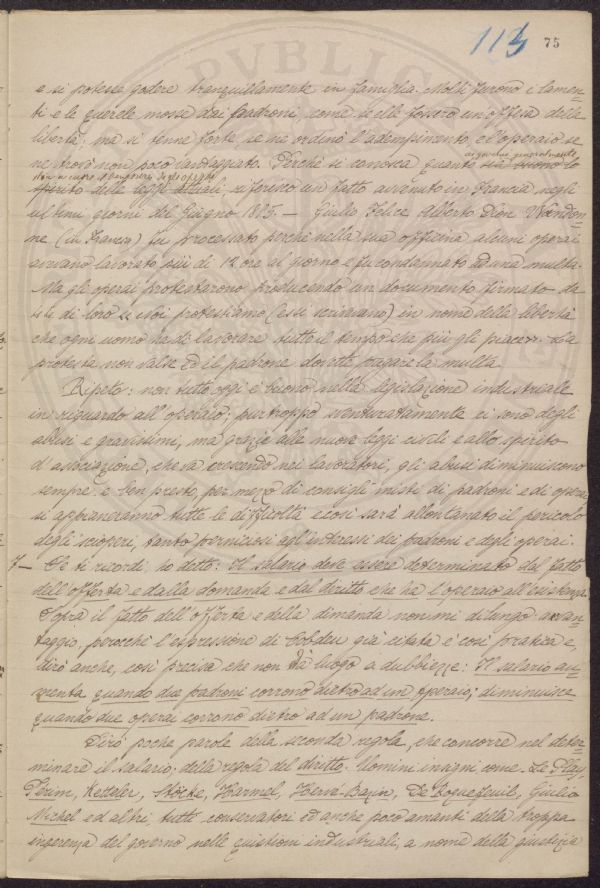 113 75
e si potesse godere tranquillamente in famiglia. Molti furono i lamen-
ti e le querele mosse dai padroni, come se elle fossero un'offesa della
libertà; ma si tenne forte se ne ordinò l'adempimento, e l'operaio se
ne trovò non poco vantaggiato. Perchè si conosca quanto sia buono lo
spirito delle leggi attuali, riferirò un fatto avvenuto in Francia negli
ultimi giorni del Giugno 1895. — Giulio Felice Alberto Dion
ne (in Francia) fu processato perchè nella sua officina alcuni operai
avevano lavorato più di 12 ore al giorno e fu condannato ad una multa.
Ma gli operai protestarono producendo un documento firmato da
di loro "Noi protestiamo (essi scrivevano) in nome della libertà
che ogni uomo ha di lavorare tutto il tempo che più gli piace". La
protesta non valse ed il padrone dovette pagare la multa.
Ripeto: non tutto oggi è buono nella legislazione industriale
in riguardo all'operaio; pur troppo sventuratamente ci sono degli
abusi e gravissimi, ma grazie alle nuove leggi civili e allo spirito
d'associazione, che va crescendo nei lavoratori, gli abusi diminuiscono
sempre: e ben presto, per mezzo di consigli misti di padroni e di operai
si appianeranno tutte le difficoltà e così sarà allontanato il pericolo
degli scioperi, tanto perniciosi agl'interessi dei padroni e degli operai.
7— Se ti ricordi, ho detto: Il salario deve essere determinato dal fatto
dell'offerta e dalla domanda e dal diritto che ha l'operaio all'esistenza.
Sopra il fatto dell'offerta e della dimanda non mi dilungo avvan-
taggio, perocchè l'espressione di Cobden già citata è così pratica e,
dirò anche, così precisa che non dà luogo a dubbiezze: Il salario au-
menta quando due padroni corrono dietro ad un operaio; diminuisce
quando due operai corrono dietro ad un padrone.
Dirò poche parole della seconda regola, che concorre nel deter-
minare il salario; della regola del diritto. Uomini insigni come Le Play,
Périn, Ketteler, Harmel, De Roquefeuil, Giulio
Michel ed altri tutti conservatori ed anche poco amanti della troppa
ingerenza del governo nelle quistioni industriali, a nome della giustizia